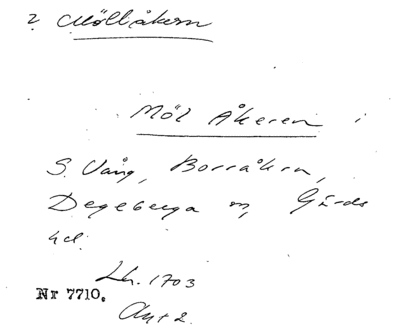 2 Möllåkern
Möl Åkeren i
S. Vång, Borråkra,
Degeberga sn, Gärds
hd.
Lh. 1703
Nr 7710.
Akt 2.